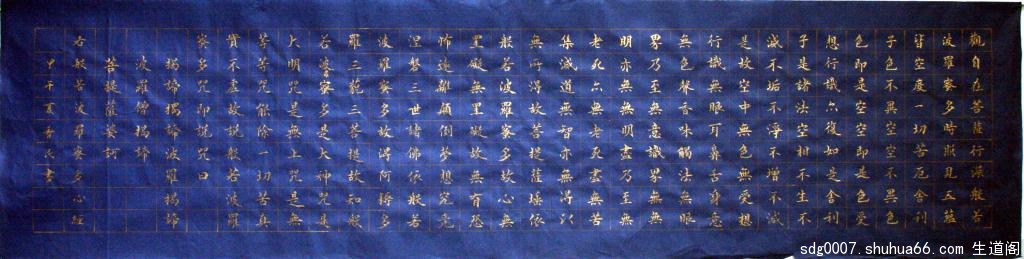 觀自在菩薩行深般若
波羅蜜多時照見五蘊
皆空度一切苦厄舍利
子色不異空空不異色
色即是空空即是色受
想行識亦復如是舍利
子是諸法空相不生不
滅不垢不淨不增不減
是故空中無色無受想
行識無眼耳鼻舌身意
無色聲香味觸法無眼
界乃至無意識界無無
明亦無無明盡乃至無
老死亦無老死盡無苦
集滅道無智亦無得以
無所得故菩提薩埵依
般若波羅蜜多故心無
罣礙無罣礙故無有恐
怖遠離顛倒夢想究竟
涅磐三世諸佛依般若
波羅蜜多故得阿耨多
羅三藐三菩提故知般
若波羅蜜多是大神咒是
大明咒是無上咒是無
等等咒能除一切苦真
實不虛故說般若波羅
蜜多咒即說咒曰
揭諦揭諦波羅揭諦
波羅僧揭諦
菩提薩婆訶
右般若波羅蜜多心經
甲午夏書
sdg0007.shuhua66.com 生道阁